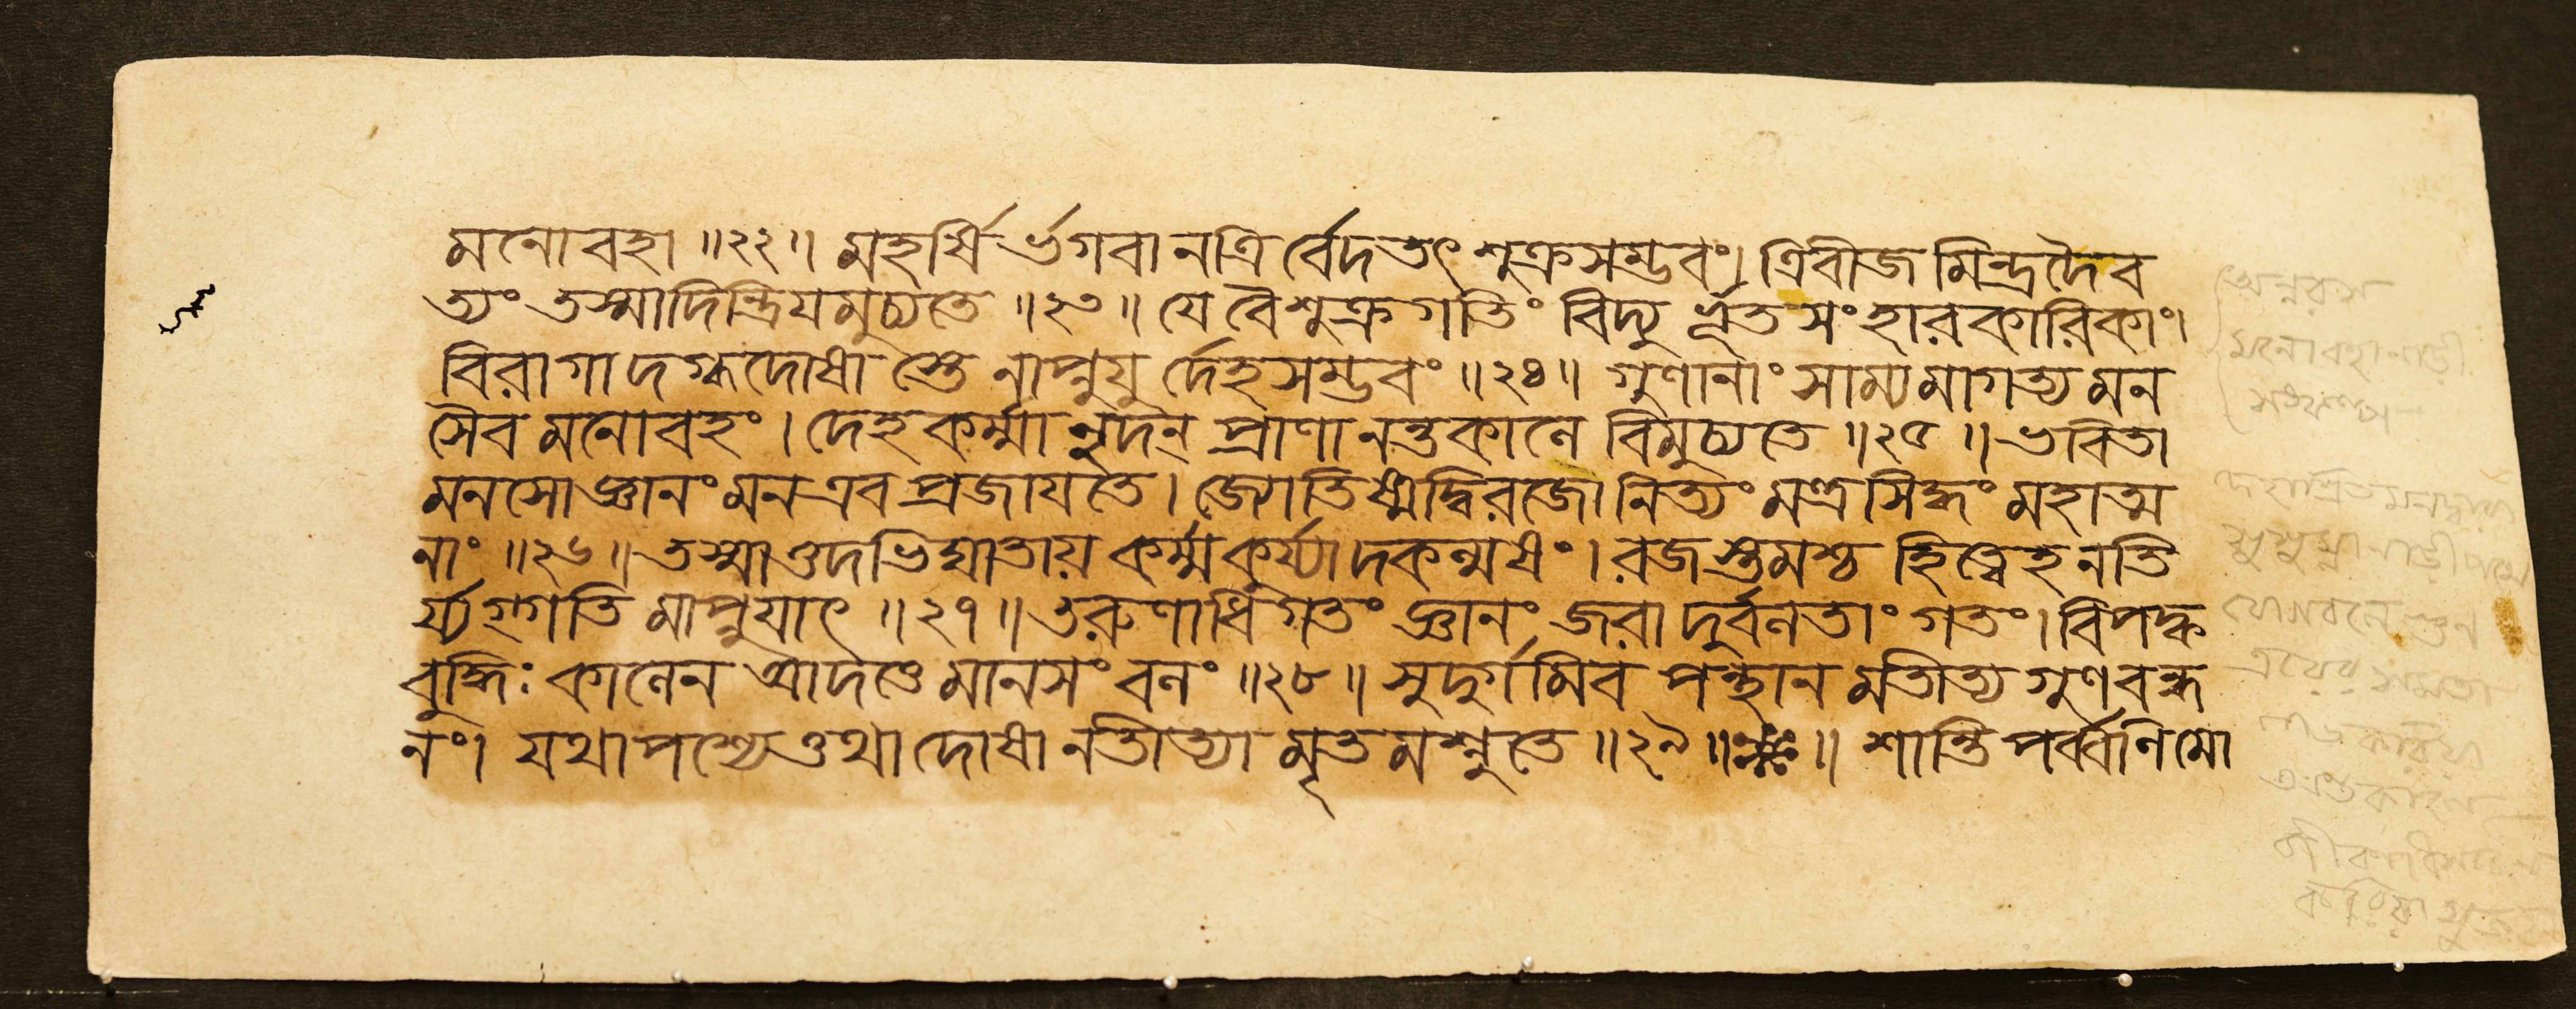 মনোবহা ॥২২॥ মহর্ষি র্ভগবানত্রি র্বেদতৎ শুক্রসম্ভবং। ত্রিবীজ মিন্দ্রদৈব
ত্যং তস্মাদিন্দ্রিযমুচ্যতে ॥২৩॥ যে বৈ শুক্রগতিং বিদ্যু র্ভূতসংহারকারিকাং।
বিরাগা দগ্ধদোষা স্তে নাপ্নুযু র্দেহসম্ভবং ॥২৪॥ গুণানাং সাম্যমাগত্য মন
সৈব মনোবহং। দেহকর্ম্মা নুদন্ প্রাণা নন্তকালে বিমুচ্যতে ॥২৫॥ ভবিতা
মনসো জ্ঞানং মন এব প্রজাযতে। জ্যোতিষ্মদ্বিরজো নিত্যং মন্ত্রসিদ্ধং মহাত্ম
নাং ॥২৬॥ তস্মাত্তদভিঘাতায় কর্ম্ম কুর্য্যাদকল্মষং। রজস্তমশ্চ হিত্বেহ নতি
র্য্যগ্গতি মাপ্নুযাৎ ॥২৭॥ তরুণাধিগতং জ্ঞানং জরা দুর্বলতাং গতং। বিপক্ক
বুদ্ধিঃ কালেন আদত্তে মানসং বলং ॥২৮॥ সুদুর্গমিব পন্থান মতীত্য গুণবন্ধ
নং। যথা পশ্যেত্তথা দোষা নতীত্যা মৃত মশ্নুতে ॥২৯॥ ॥ শান্তি পর্ব্বণি মো
অন্নরস
মনোবহা নাড়ী
দেহাশ্রিত মনদ্বারা
সুষুম্না নাড়ীপথে
যোগবলে গুন
ত্রয়ের সমতা
করিয়া